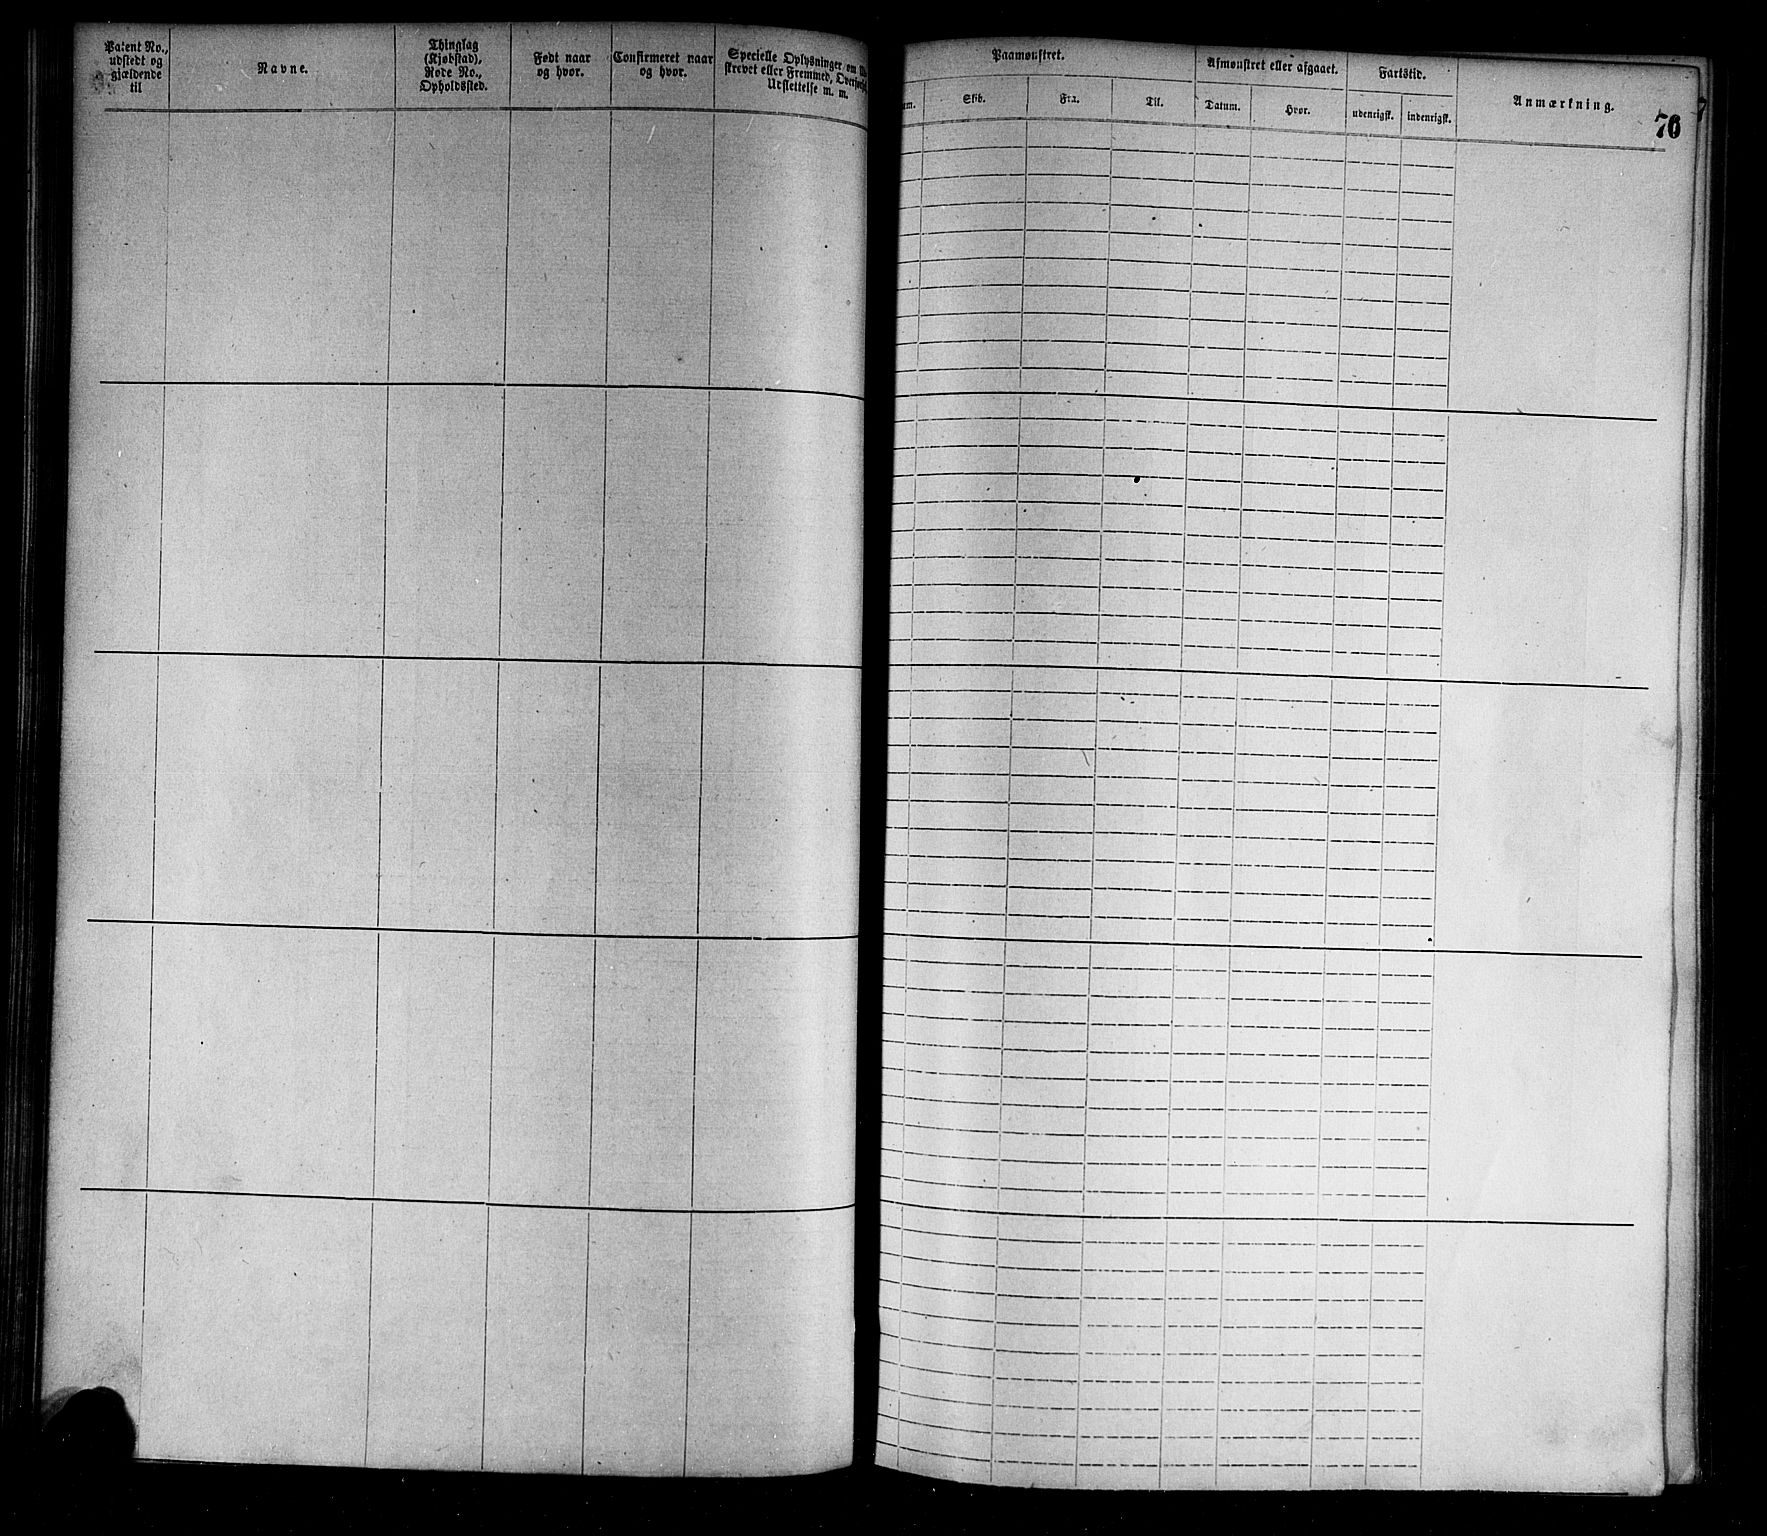 Patent No.,
udstedt og
gjældende
til
Navne.
Thinglag
(Kjøbstad),
Rode No.,
Opholdssted.
Født naar
og hvor.
Confirmeret naar
og hvor.
Specielle Oplysninger om
skrevet eller Fremmed,
Udslettelse m. m.
Paamønstret.
Skib.
Fra.
Til.
Afmønstret eller afgaaet.
Datum.
Hvor.
Fartstid.
udenrigsk.
indenrigsk.
Anmærkning.
76